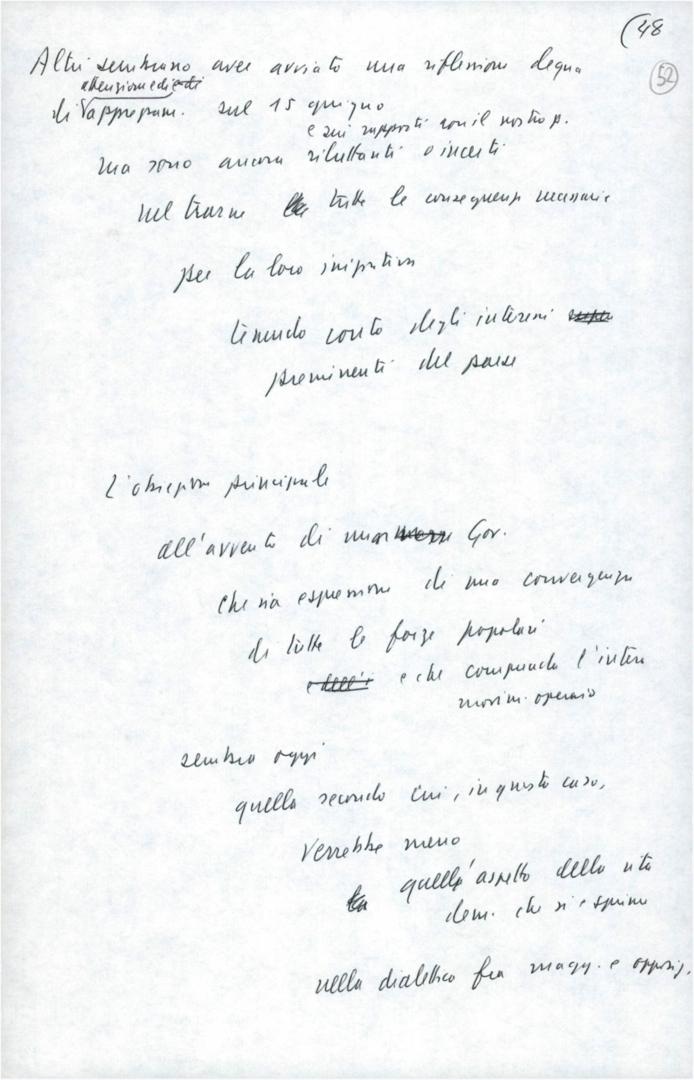 (48
52
Altri sembrano aver avviato una riflessione degna
attenzione e di
di apprezzam. sul 15 giugno
e sui rapporti con il nostro p.
ma sono ancora riluttanti o incerti
nel trarne tutte le conseguenze necessarie
per la loro iniziativa
tenendo conto degli interessi
preminenti del paese
L'obiezione principale
all'avvento di un Gov.
che sia espressione di una convergenza
di tutte le forze popolari
e che comprenda l'intero
movim. operaio
sembra oggi
quella secondo cui, in questo caso,
verrebbe meno
quell'aspetto della vita
dem. che si esprime
nella dialettica fra magg. e opposiz.